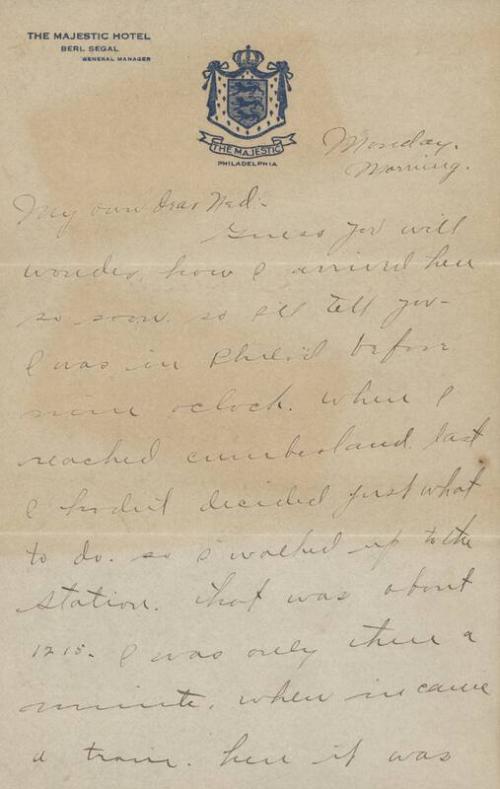 THE MAJESTIC HOTEL
BERL SEGAL
GENERAL MANAGER
THE MAJESTIC
PHILADELPHIA
Monday.
Morning.
My own Dear Ned:-
Guess you will
wonder, how I arrived here
so soon. so I'll tell you-
I was in Phila'd before
nine oclock. When I
reached Cumberland. last
I hadn't decided just what
to do. so I walked up to the
station. that was about
12 15. I was only there a
minute. when in came
a train. here it was